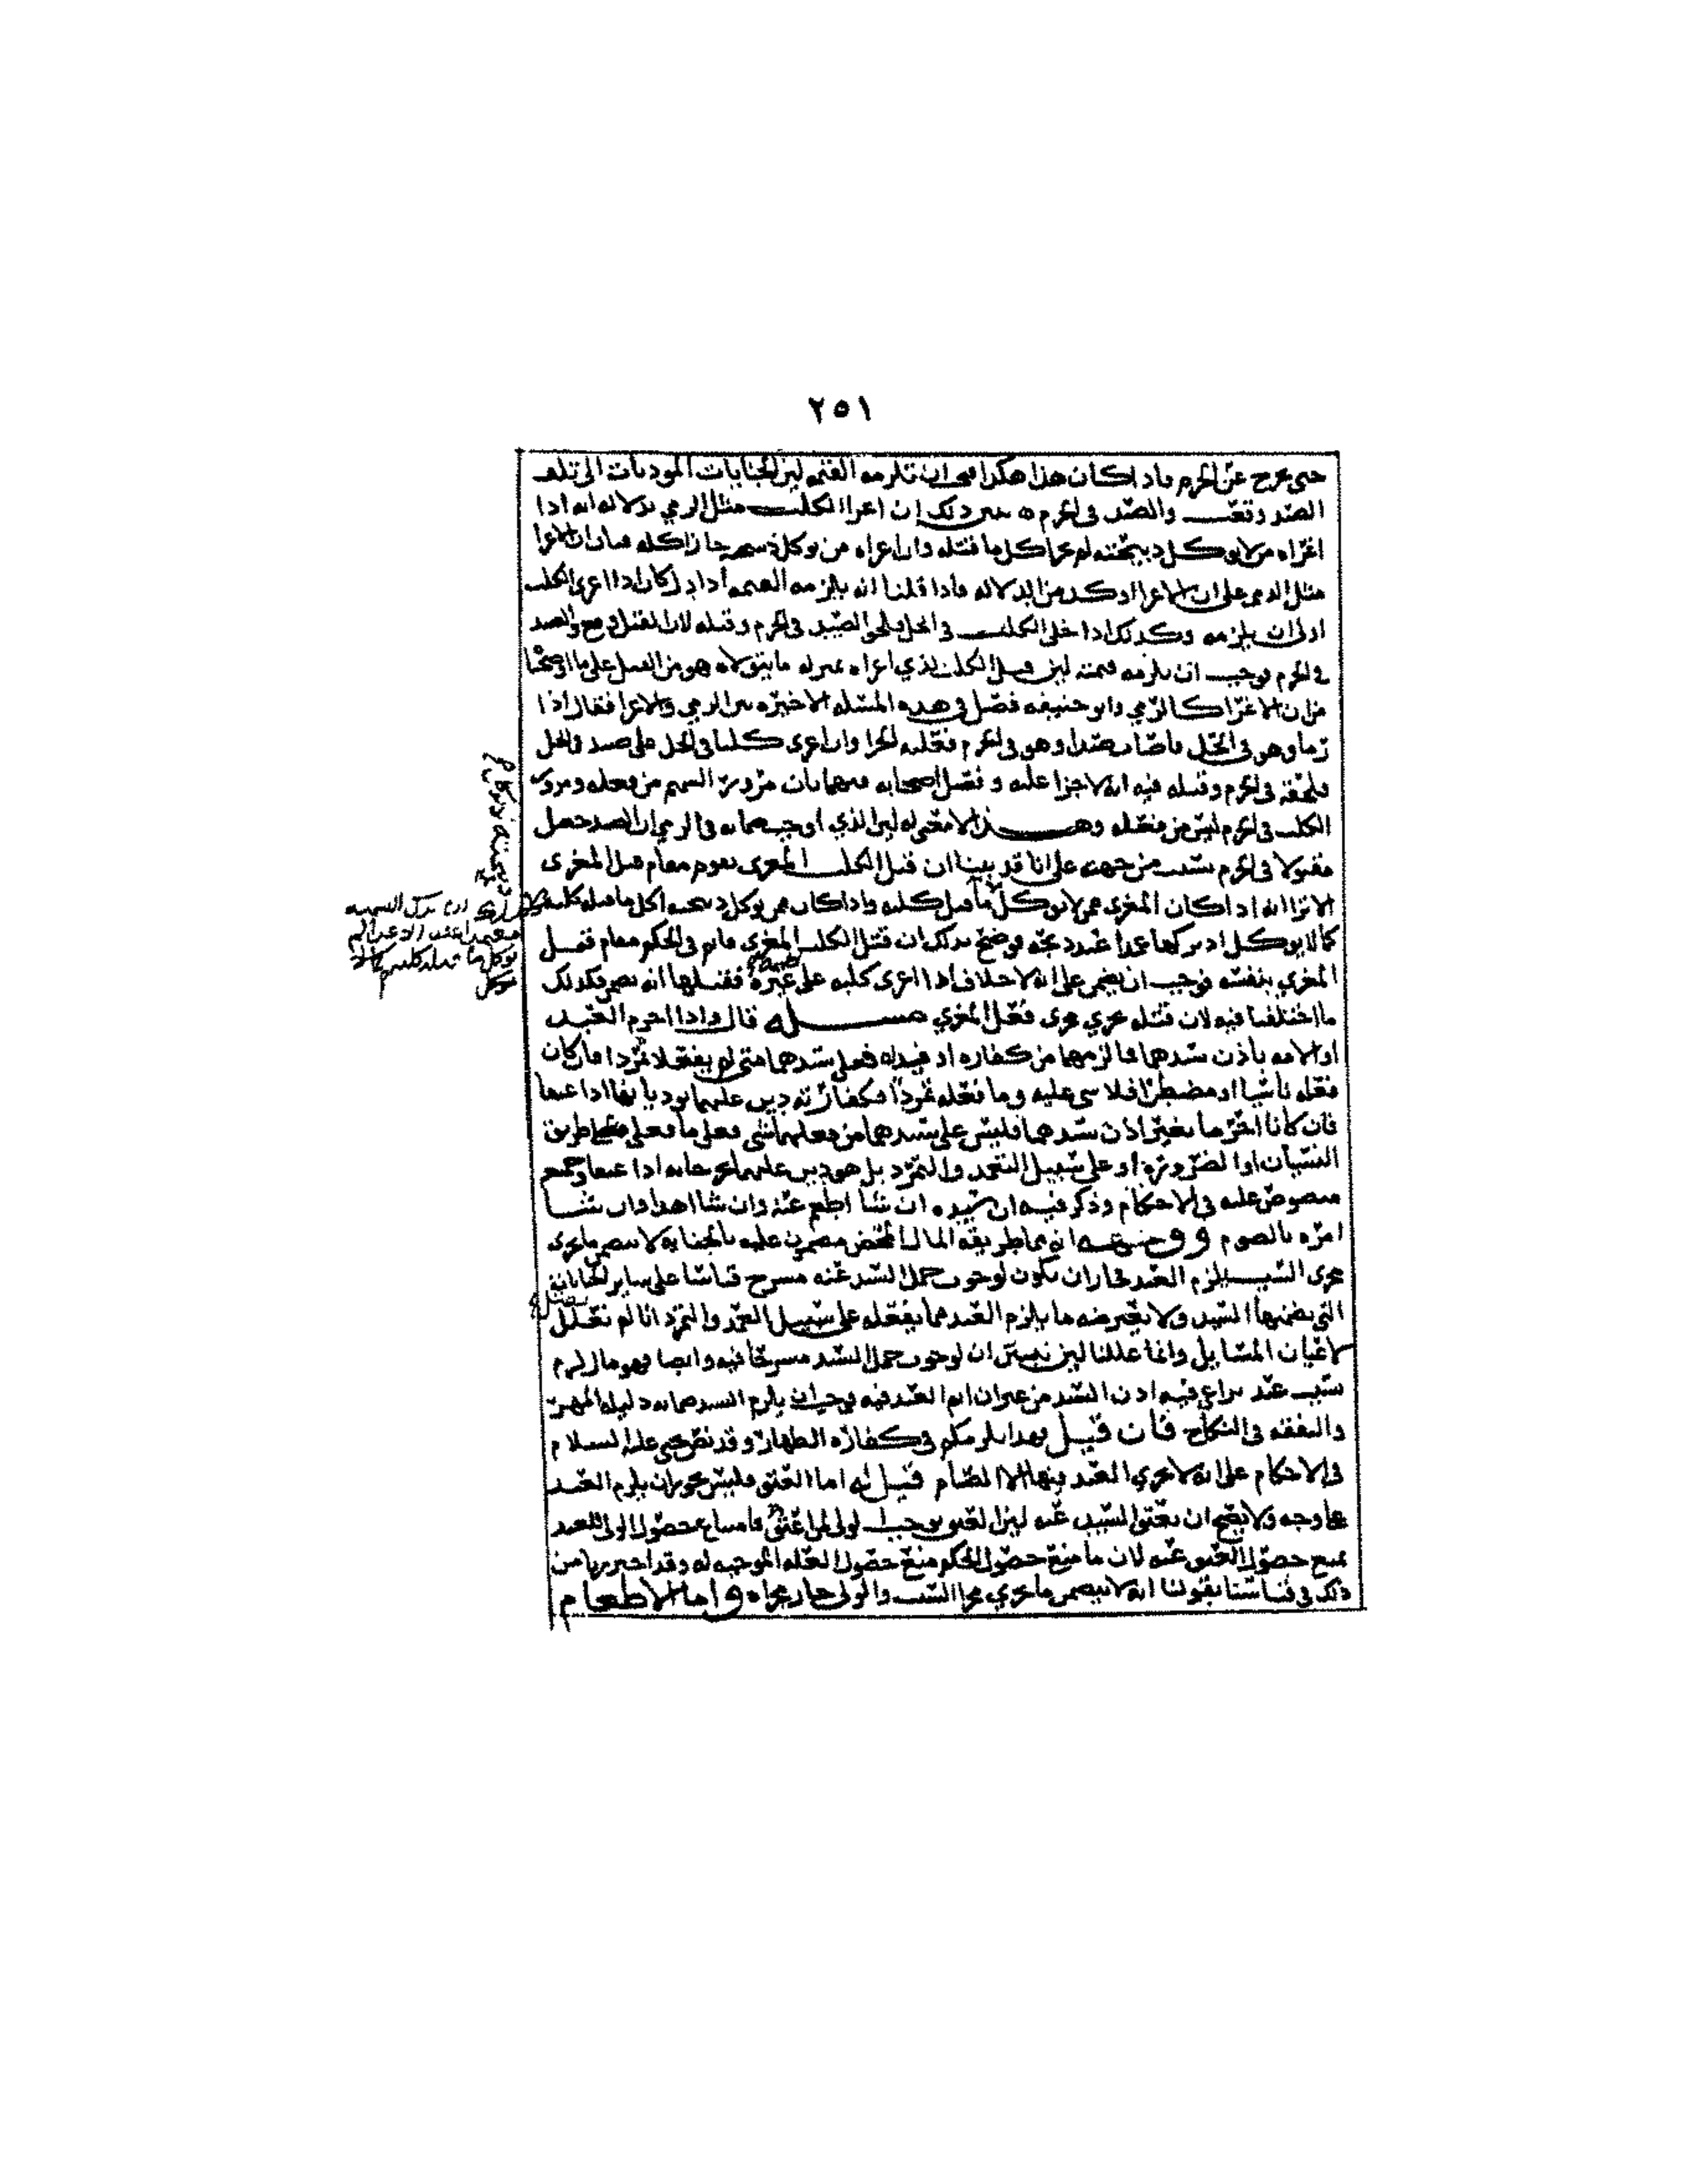 ٢٥١
حتى خرج عن الحرم فاذا كان هذا هكذا فيجب ان تلزمه القيمه لان الجنايات الموديات الى تلف
الصيد وتعب والصيد في الحرم يبين ذلك ان اغرا الكلب مثل الرمي بدلاله انه اذا
اغراه من لا يوكل ذبيحته لم يجز اكل ما قتله وان اغراه من يوكل ذبيحته جاز اكله فبان ان الاغرا
مثل الرمي على ان الاغرا اوكد من الدلاله فاذا قلنا انه يلزمه القيمه اذا دل كان اذا اغرى الكلب
اولى ان يلزمه وكذلك اذا خلى الكلب في الحل فلحق الصيد في الحرم وقتله لان القتل وقع والصيد
في الحرم فوجب ان تلزمه قيمته لان قتل الكلب الذي اغراه بمنزله ما يتولاه هو من القتل على ما اوضحنا
من ان الاغرا كالرمي وابو حنيفه فصل في هذه المسئله الاخيره بين الرمي والاغرا فقال اذا
رما وهو في الحل فاصاب صيدا وهو في الحرم فعليه الجزا وان اغرى كلبا في الحل على صيد في الحل
فلحقه في الحرم وقتله فيه انه لا جزا عليه وفصل اصحابه بينهما بان مرور السهم من فعله ومرور
الكلب في الحرم ليس من فعله وهذا لا معنى له لان الذي اوجب ضمانه في الرمي ان الصيد حصل
مقتولا في الحرم بسبب من جهته على انا قد بينا ان قتل الكلب المغرى يقوم مقام قتل المغري
الا ترا انه اذا كان المغري ممن لا يوكل ما قتل كلبه واذا كان ممن يوكل ذبيحته اكل ما قتله كلبه
كما لا يوكل اذ تركها عمدا عند ذبحه فوضح بذلك ان قتل الكلب المغرى قايم في الحكم مقام قتل
المغري بنفسه فوجب ان يضمن على انه لا خلاف اذا اغرى كلبه على غيره فقتلها انه يضمن فكذلك
ما اختلفنا فيه لان قتله يجري مجرى فعل المغري مسئله قال واذا احرم العبد
او الامه باذن سيدهما فما لزمهما من كفاره او فديه فعلى سيدهما متى لم يفعلا تمردا فان كان
فعله ناسيا او مضطرا فلا شي عليه وما فعله تمردا فكفارته دين عليهما يوديانها اذا عتقا
فان كانا احرما بغير اذن سيدهما فليس على سيدهما من فعلهما شي فعلى ما فعلى من طريق
النسيان او الضروره او على سبيل التعمد والتمرد بل هو دين عليهما يخرجانه اذا عتقا وجميعه
منصوص عليه في الاحكام وذكر فيه ان سيده ان شا اطعم عنه وان شا اهدا وان شا
امره بالصوم ووجهه انه مما طريقه المال المحض مضمون عليه بالجنايه لا يتضمن ما يجرى
مجرى السبب يلزم العبد فجاز ان يكون لوجوب حمل السيد عنه مسرح قياسا على ساير الجنايات
التي يضمنها السيد ولا يعترضه ما يلزم العبد مما يفعله على سبيل التعمد والتمرد انا لم نعلل
لاعيان المسايل وانما عللنا لان نبين ان لوجوب حمل السيد مسرحا فيه وايضا فهو مال لزم
بسبب عقد يراعى فيه اذن السيد من غير ان اثم العبد فيه فوجب ان يلزم السيد ضمانه دليله المهر
والنفقه في النكاح فان قيل بهذا يلزمكم في كفاره الظهار وقد نص يحيى عليه السلام
في الاحكام على انه لا يجزي العبد فيها الا الصيام قيل له اما العتق فليس يجوز ان يلزم العبد
بحال وجه ولا يصح ان يعتق السيد عنه لان العتق يوجب الولى لمن اعتق فامتناع حصول الولى للعبد
يمنع حصول العتق عنه لان ما منع حصول الحكم منع حصول العله الموجبه له وقد احترزنا من
ذلك في قياسنا بقولنا انه لا يتضمن ما يجري مجرا السبب والولى جار مجراه واما الاطعام